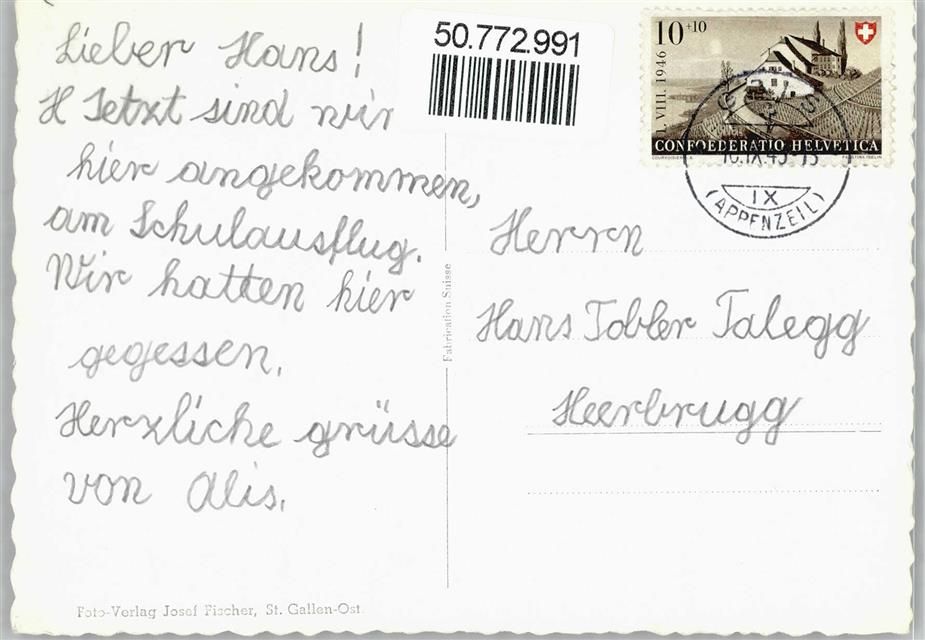 Lieber Hans!
H Jetzt sind wir
hier angekommen,
am Schulausflug.
Wir hatten hier
gegessen.
Herzliche grüsse
von Alis.
Foto-Verlag Josef Fischer, St. Gallen-Ost.
Fabrication Suisse
50.772.991
10+10
I. VIII. 1946
CONFOEDERATIO HELVETICA
COURVOISIER S.A.
IX
(APPENZELL)
Herrn
Hans Tobler Talegg
Heerbrugg